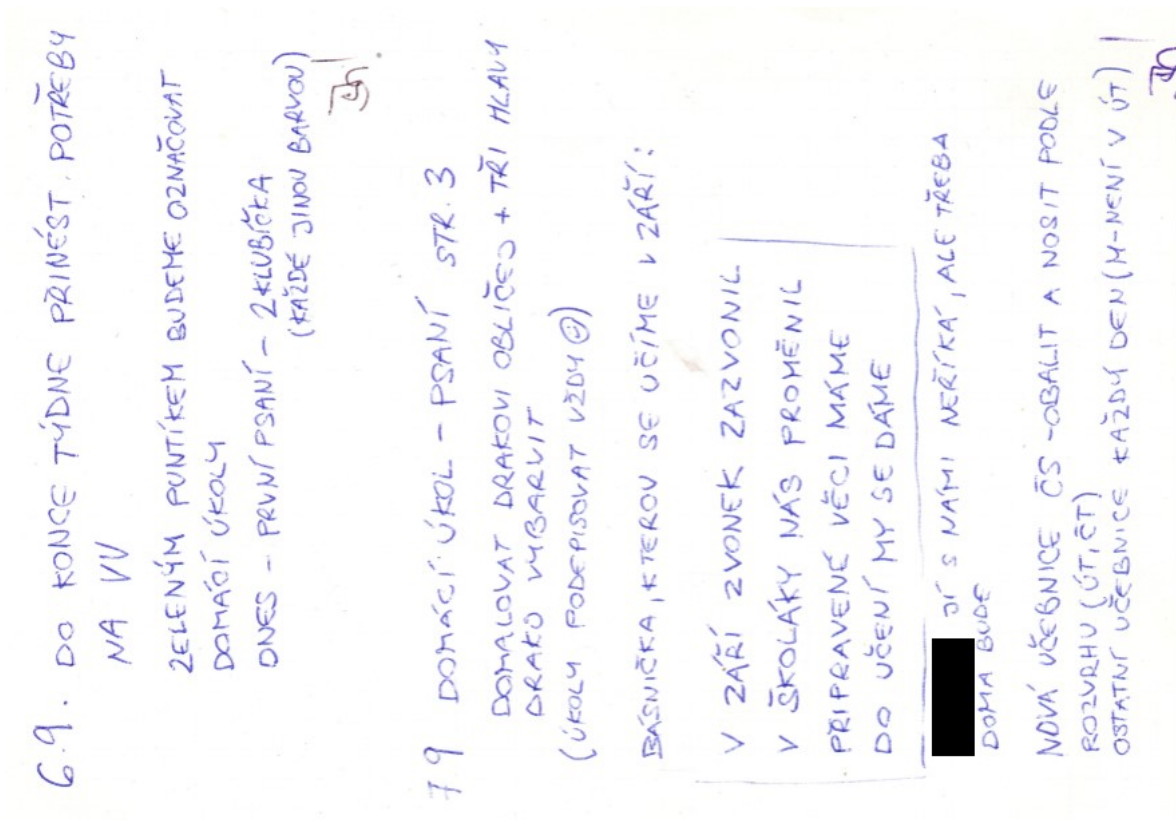 6.9. DO KONCE TÝDNE PŘINÉST POTŘEBY
NA VV
ZELENÝM PUNTÍKEM BUDEME OZNAČOVAT
DOMÁCÍ ÚKOLY
DNES – PRVNÍ PSANÍ – 2 KLUBÍČKA
(KAŽDÉ JINOU BARVOU)
7.9 DOMÁCÍ ÚKOL – PSANÍ STR. 3
DOMALOVAT DRAKOVI OBLIČEJ + TŘI HLAVY
DRAKŮ VYBARVIT
(ÚKOLY PODEPISOVAT VŽDY ☺)
BÁSNIČKA, KTEROU SE UČÍME V ZÁŘÍ:
V ZÁŘÍ ZVONEK ZAZVONIL
V ŠKOLÁKY NÁS PROMĚNIL
PŘIPRAVENÉ VĚCI MÁME
DO UČENÍ MY SE DÁME
JÍ S NÁMI NEŘÍKÁ, ALE TŘEBA
DOMA BUDE
NOVÁ UČEBNICE ČS – OBALIT A NOSIT PODLE
ROZVRHU (ÚT, ČT)
OSTATNÍ UČEBNICE KAŽDÝ DEN (M-NENÍ V ÚT)